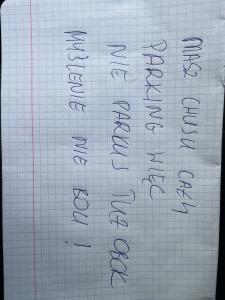 MASZ CHUJU CAŁY
PARKING WIĘC
NIE PARKUJ TUŻ OBOK
MYŚLENIE NIE BOLI !